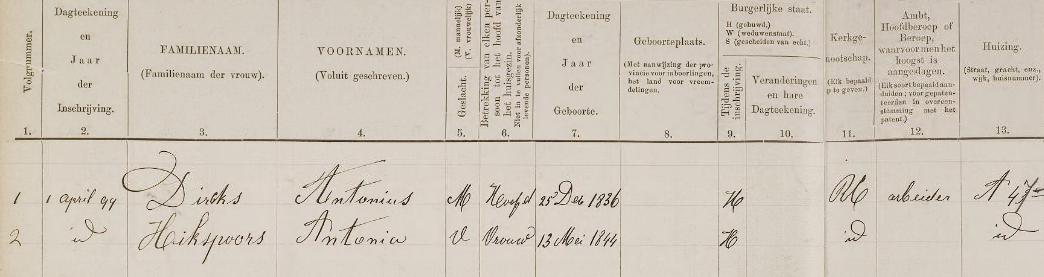 Volgnummer.
1.
Dagteekening
en
Jaar
der
Inschrijving.
2.
FAMILIENAAM.
(Familienaam der vrouw).
3.
VOORNAMEN.
(Voluit geschreven).
4.
Geslacht. (M. mannelijk) (V. vrouwelijk)
5.
Betrekking van elken per-
soon tot het hoofd van
het huisgezin.
Niet in te vullen voor afzonderlijk
levende personen).
6.
Dagteekening
en
Jaar
der
Geboorte.
7.
Geboorteplaats.
(Met aanwijzing der pro-
vincie voor inboorlingen,
het land voor vreem-
delingen.
8.
Burgerlijke staat.
H (gehuwd.)
W (weduwenstaat).
S (gescheiden van echt.)
Tijdens de
inschrijving.
9.
Veranderingen
en hare
Dagteekening.
10.
Kerkge-
nootschap.
(Elk bepaald
op te geven.)
11.
Ambt,
Hoofdberoep of
Beroep,
waarvoor men het
hoogst is
aangeslagen.
(Elk soort bepaald aan-
duiden; voor gepaten-
teerden in overeen-
stemming met het
patent.)
12.
Huizing.
(Straat, gracht, enz.,
wijk, huisnummer).
13.
1 1 april 99 Dircks Antonius M Hoofd 25 Dec 1836 H RK arbeider A 47
2 id Heikspoors Antonia V Vrouw 13 Mei 1844 H id id